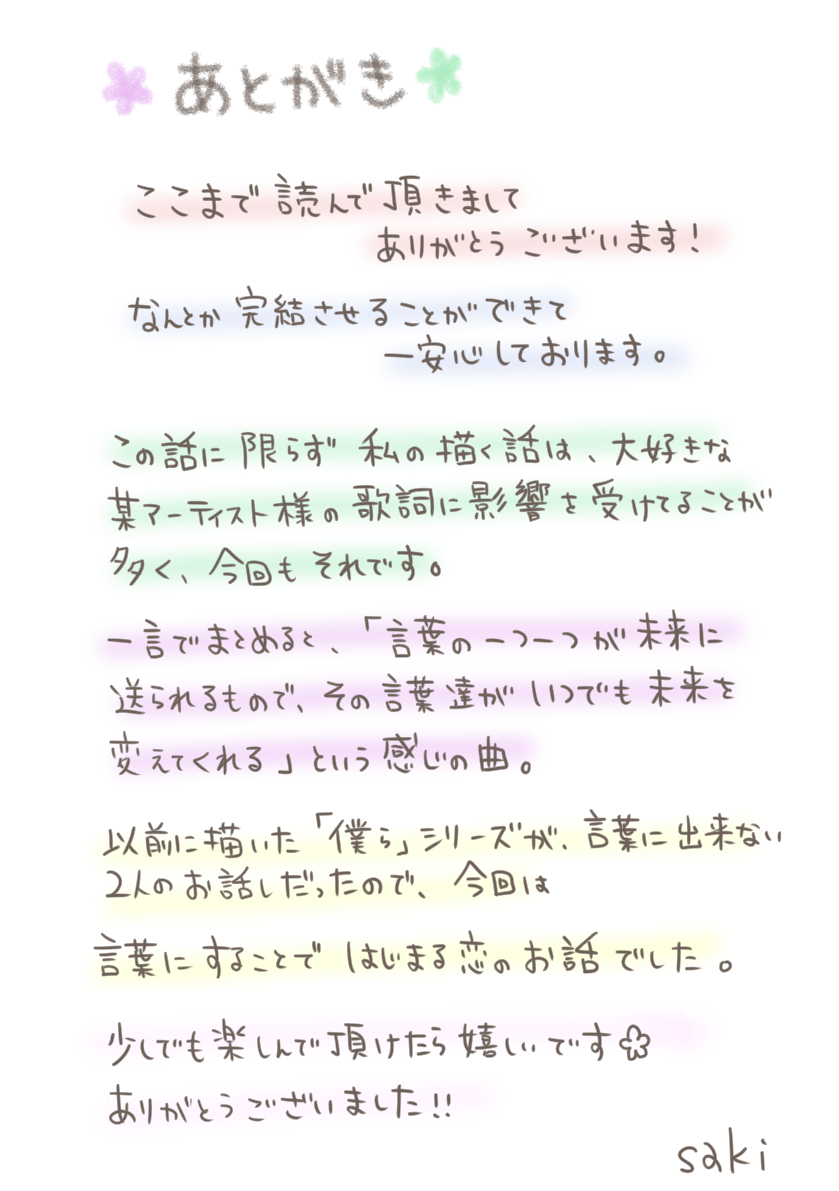 あとがき
ここまで読んで頂きまして
ありがとうございます!
なんとか完結させることができて
一安心しております。
この話に限らず私の描く話は、大好きな
某アーティスト様の歌詞に影響を受けてることが
多く、今回もそれです。
一言でまとめると、「言葉の一つ一つが未来に
送られるもので、その言葉達がいつでも未来を
変えてくれる」という感じの曲。
以前に描いた「僕ら」シリーズが、言葉に出来ない
2人のお話しだったので、今回は
言葉にすることではじまる恋のお話でした。
少しでも楽しんで頂けたら嬉しいです
ありがとうございました!!
saki